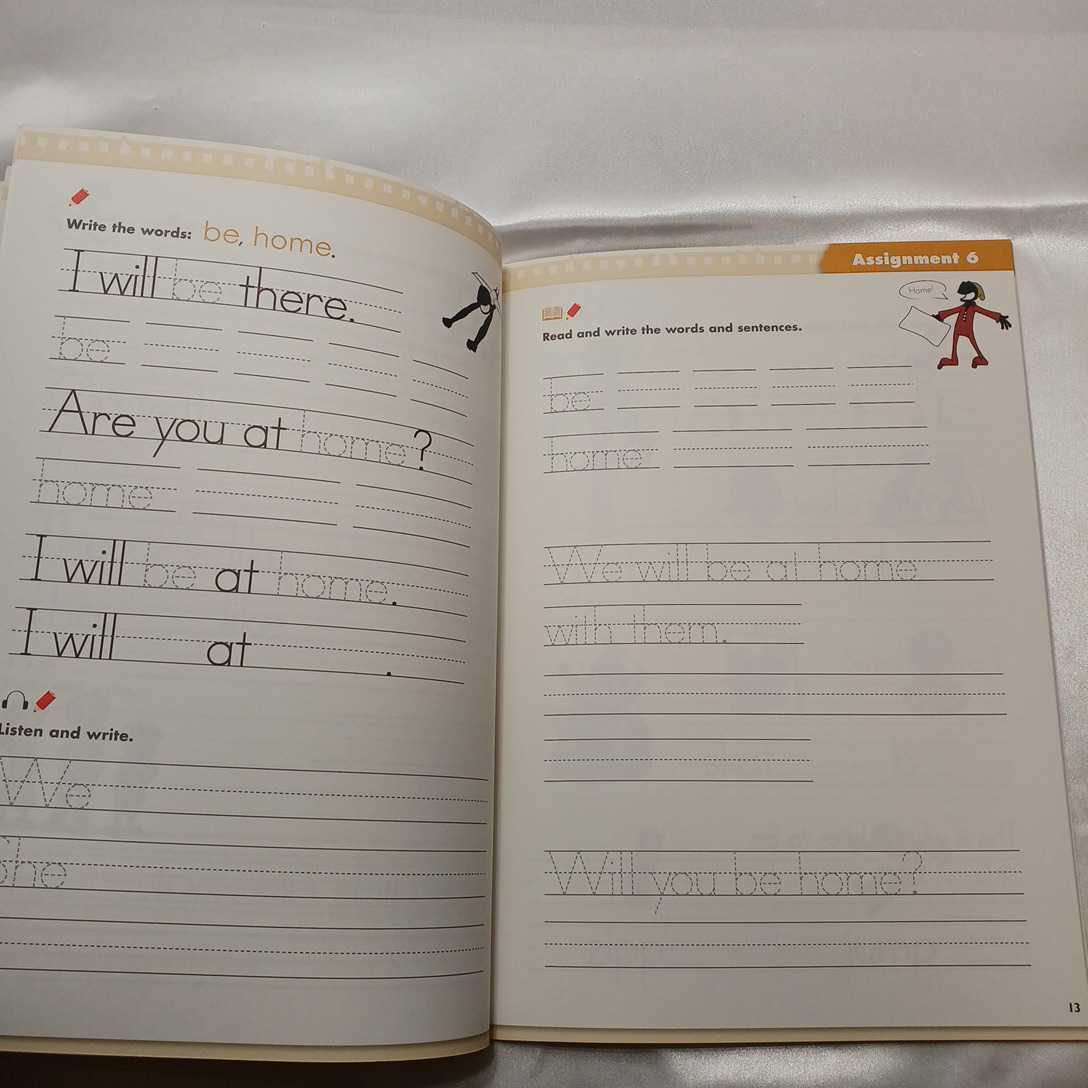 Write the words: be, home.
I will be there.
be
Are you at home?
home
I will be at home.
I will at .
Listen and write.
We
She
Assignment 6
Home!
Read and write the words and sentences.
be
home
We will be at home
with them.
Will you be home?
13